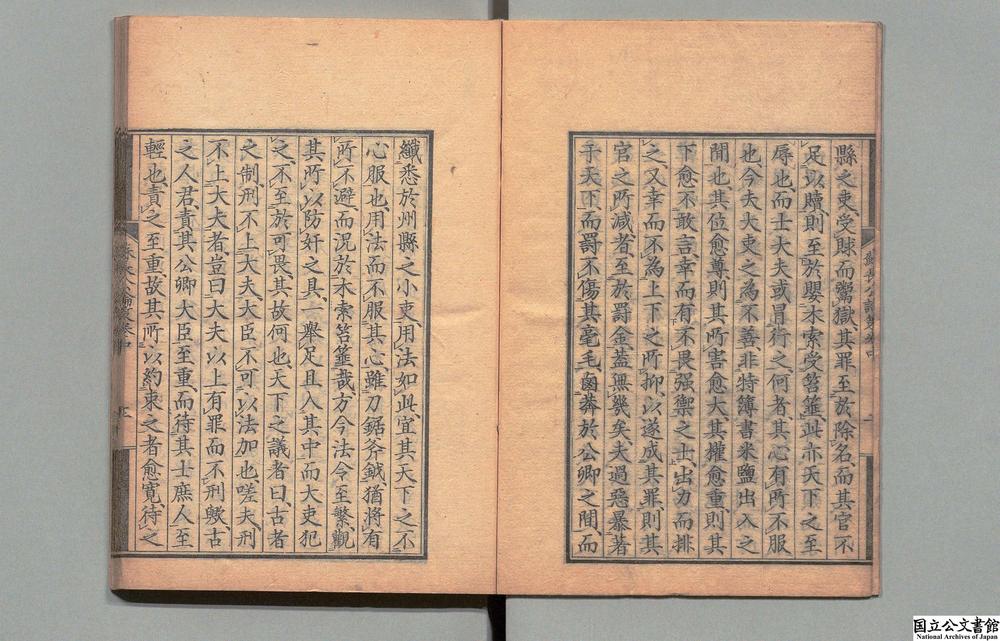 縣之吏、受賕而鬻獄、其罪至於除名、而其官不
足以贖、則至於嬰木索、受笞箠、此亦天下之至
辱也、而士大夫或冒行之、何者、其心有所不服
也、今夫大吏之為不善、非特簿書米鹽出入之
間也、其位愈尊、則其所害愈大、其權愈重、則其
下愈不敢言、幸而有不畏强禦之士、出力而排
之、又幸而不為上下之所抑、以遂成其罪、則其
官之所減者、至於罰金、蓋無幾矣、夫過惡暴著
于天下、而罰不傷其毫毛、鹵莽於公卿之間、而
纖悉於州縣之小吏、用法如此、宜其天下之不
心服也、用法而不服其心、雖刀鋸斧鉞、猶將有
所不避、而況於木索笞箠哉、方今法令至繁、觀
其所以防奸之具、一舉足且入其中、而大吏犯
之、不至於可畏、其故何也、天下之議者曰、古者
之制、刑不上大夫、大臣不可以法加也、嗟夫、刑
不上大夫者、豈曰大夫以上有罪而不刑歟、古
之人君、責其公卿大臣至重、而待其士庶人至
輕也、責之至重、故其所以約束之者愈寬、待之
国立公文書館
National Archives of Japan